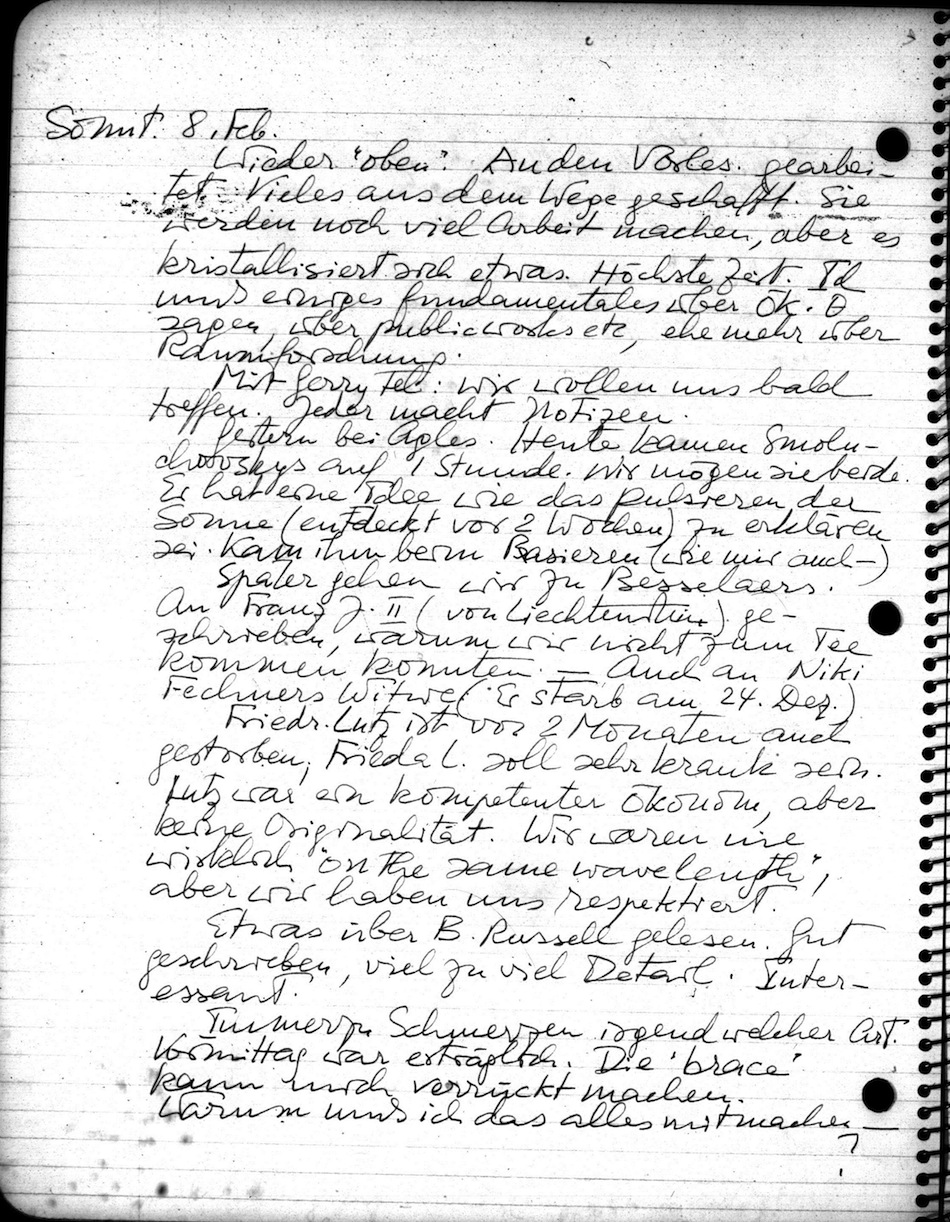 Sonnt. 8. Feb.
Wieder "oben". An den Vorles. gearbei-
tet. Vieles aus dem Wege geschafft. Sie
werden noch viel Arbeit machen, aber es
kristallisiert sich etwas. Höchste Zeit. Ich
muss einiges fundamentales über Ök. O
sagen, über public works etc, ehe mehr über
Raumforschung.
Mit Gerry Tel: wir wollen uns bald
treffen. Jeder macht Notizen.
Gestern bei Agles. Heute kamen Smolu-
chovskys auf 1 Stunde. Wir mögen sie beide.
Er hat eine Idee wie das pulsieren der
Sonne (entdeckt vor 2 Wochen) zu erklären
sei. Kam ihm beim Rasieren (wie mir auch–)
Später gehen wir zu Besselaers.
An Franz J. II (von Liechtenstein) ge-
schrieben, warum wir nicht zum Tee
kommen konnten. — Auch an Niki
Fechners Witwe (Er starb am 24. Dez.)
Friedr. Lutz ist vor 2 Monaten auch
gestorben; Frieda L. soll sehr krank sein.
Lutz war ein kompetenter Ökonom, aber
keine Originalität. Wir waren nie
wirklich "on the same wavelength",
aber wir haben uns respektiert.
Etwas über B. Russell gelesen. Gut
geschrieben, viel zu viel Detail. Inter-
essant.
Immerzu Schmerzen irgendwelcher Art.
Vormittag war erträglich. Die 'brace'
kann mich verrückt machen.
Warum muss ich das alles mitmachen —
?